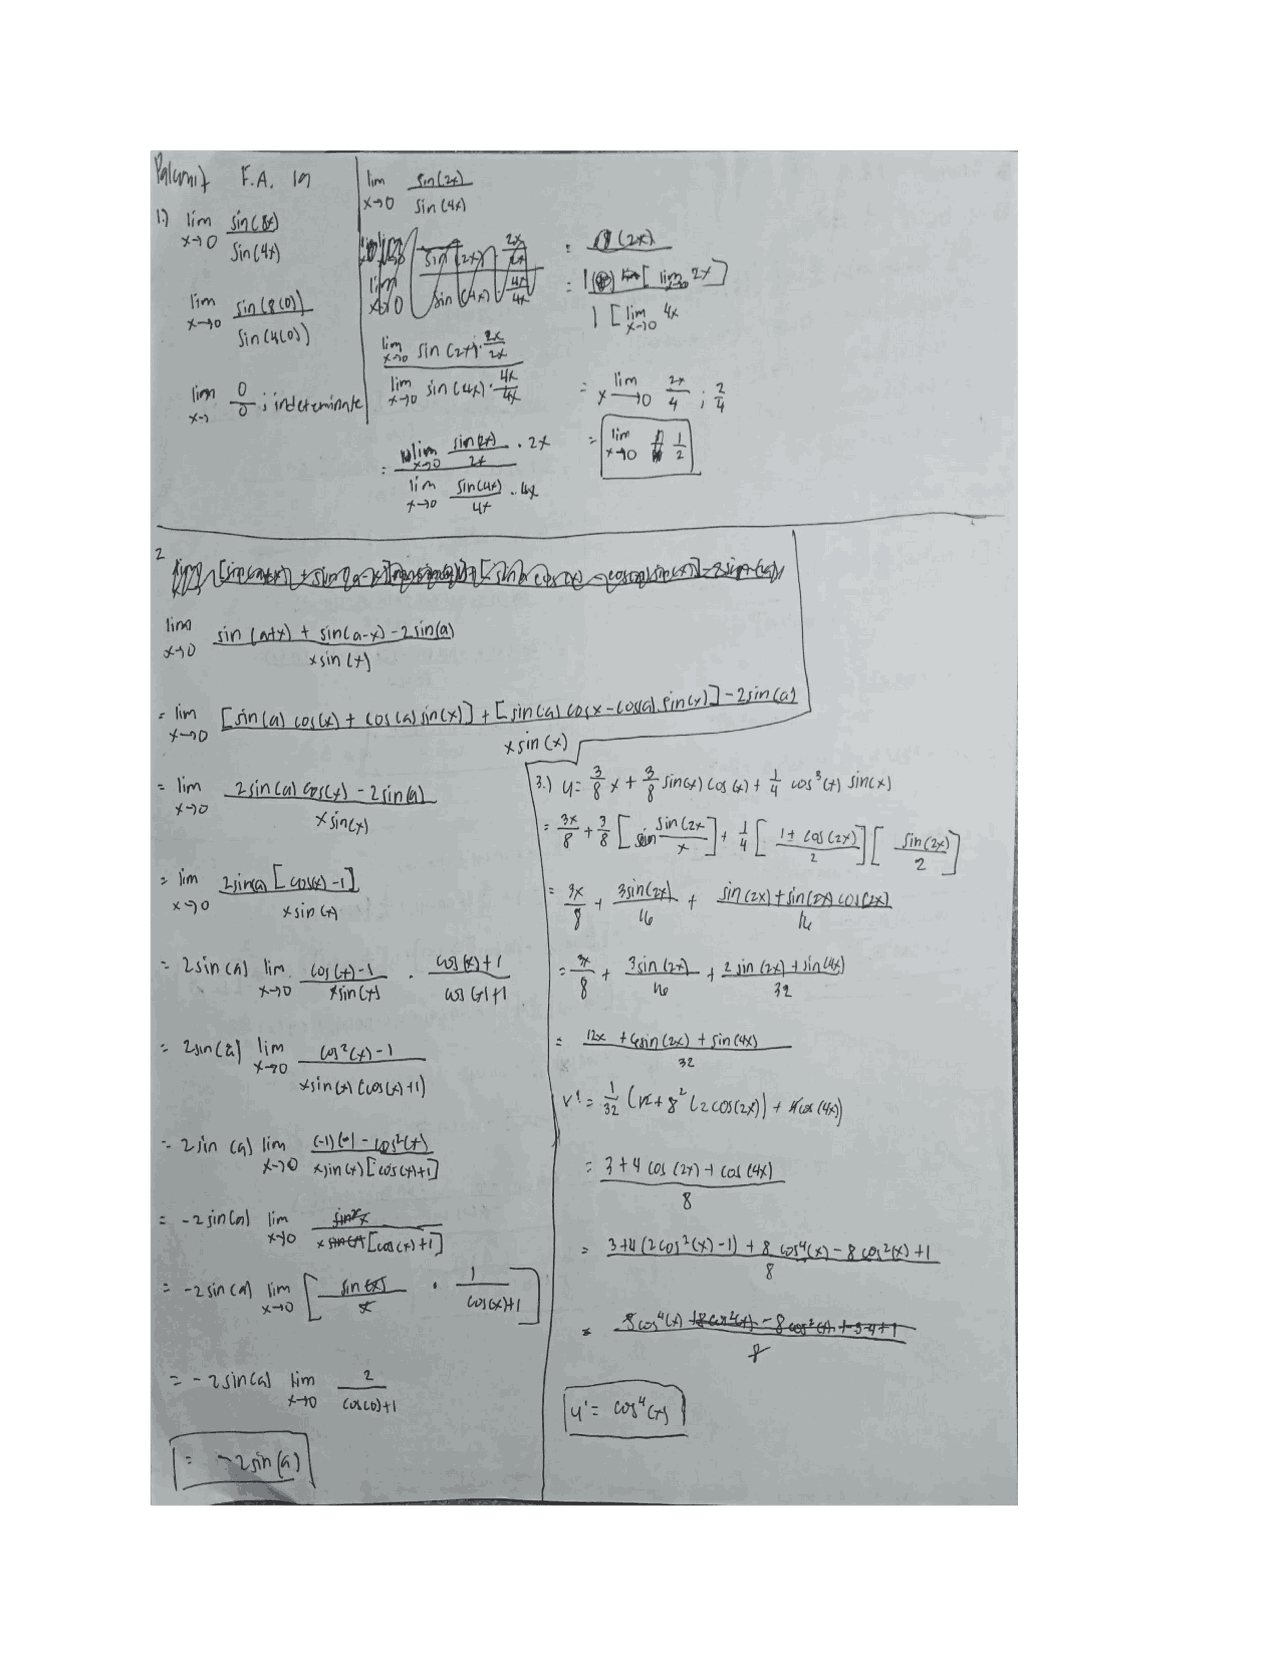 Palcunit F.A. 1a
1.) lim x→0 sin(8x) / sin(4x)
lim x→0 sin(8(0)) / sin(4(0))
lim x→ 0/0 ; indeterminate
lim x→0 sin(2x) / sin(4x)
lim x→0 sin(2x)·2x/2x / lim x→0 sin(4x)·4x/4x
= lim x→0 sin(2x)/2x · 2x / lim x→0 sin(4x)/4x · 4x
= (2x)
= 1 [lim 2x] / 1 [lim x→0 4x
= lim x→0 2x/4 ; 2/4
= lim x→0 1/2
2
lim x→0 sin(a+x) + sin(a-x) - 2sin(a) / x sin(x)
= lim x→0 [sin(a) cos(x) + cos(a) sin(x)] + [sin(a) cosx - cos(a) sin(x)] - 2sin(a) / x sin(x)
= lim x→0 2sin(a) cos(x) - 2sin(a) / x sin(x)
= lim x→0 2sin(a) [cos(x) - 1] / x sin(x)
= 2sin(a) lim x→0 cos(x)-1 / x sin(x) · cos(x)+1 / cos(x)+1
= 2sin(a) lim x→0 cos²(x)-1 / x sin(x) (cos(x)+1)
= 2sin(a) lim x→0 (-1)(1-cos²(x) / x sin(x)[cos(x)+1]
= -2sin(a) lim x→0 sin²x / x sin(x) [cos(x)+1]
= -2sin(a) lim x→0 [ sin(x) / x · 1 / cos(x)+1 ]
= -2sin(a) lim x→0 2 / cos(0)+1
= -2sin(a)
3.) y = 3/8 x + 3/8 sin(x) cos(x) + 1/4 cos³(x) sin(x)
= 3x/8 + 3/8 [ sin(2x / x ] + 1/4 [ 1+cos(2x) / 2 ] [ sin(2x) / 2 ]
= 3x/8 + 3sin(2x) / 16 + sin(2x)+sin(2x) cos(2x) / 16
= 3x/8 + 3sin(2x) / 16 + 2sin(2x)+sin(4x) / 32
= 12x + 8sin(2x) + sin(4x) / 32
y' = 1/32 (12 + 8 (2cos(2x)) + 4cos(4x))
= 3+4cos(2x)+cos(4x) / 8
= 3+4(2cos²(x)-1) + 8cos⁴(x) - 8cos²(x)+1 / 8
= 8cos⁴(x) +8cos²(x) - 8cos²(x) +3-4+1 / 8
y' = cos⁴(x)